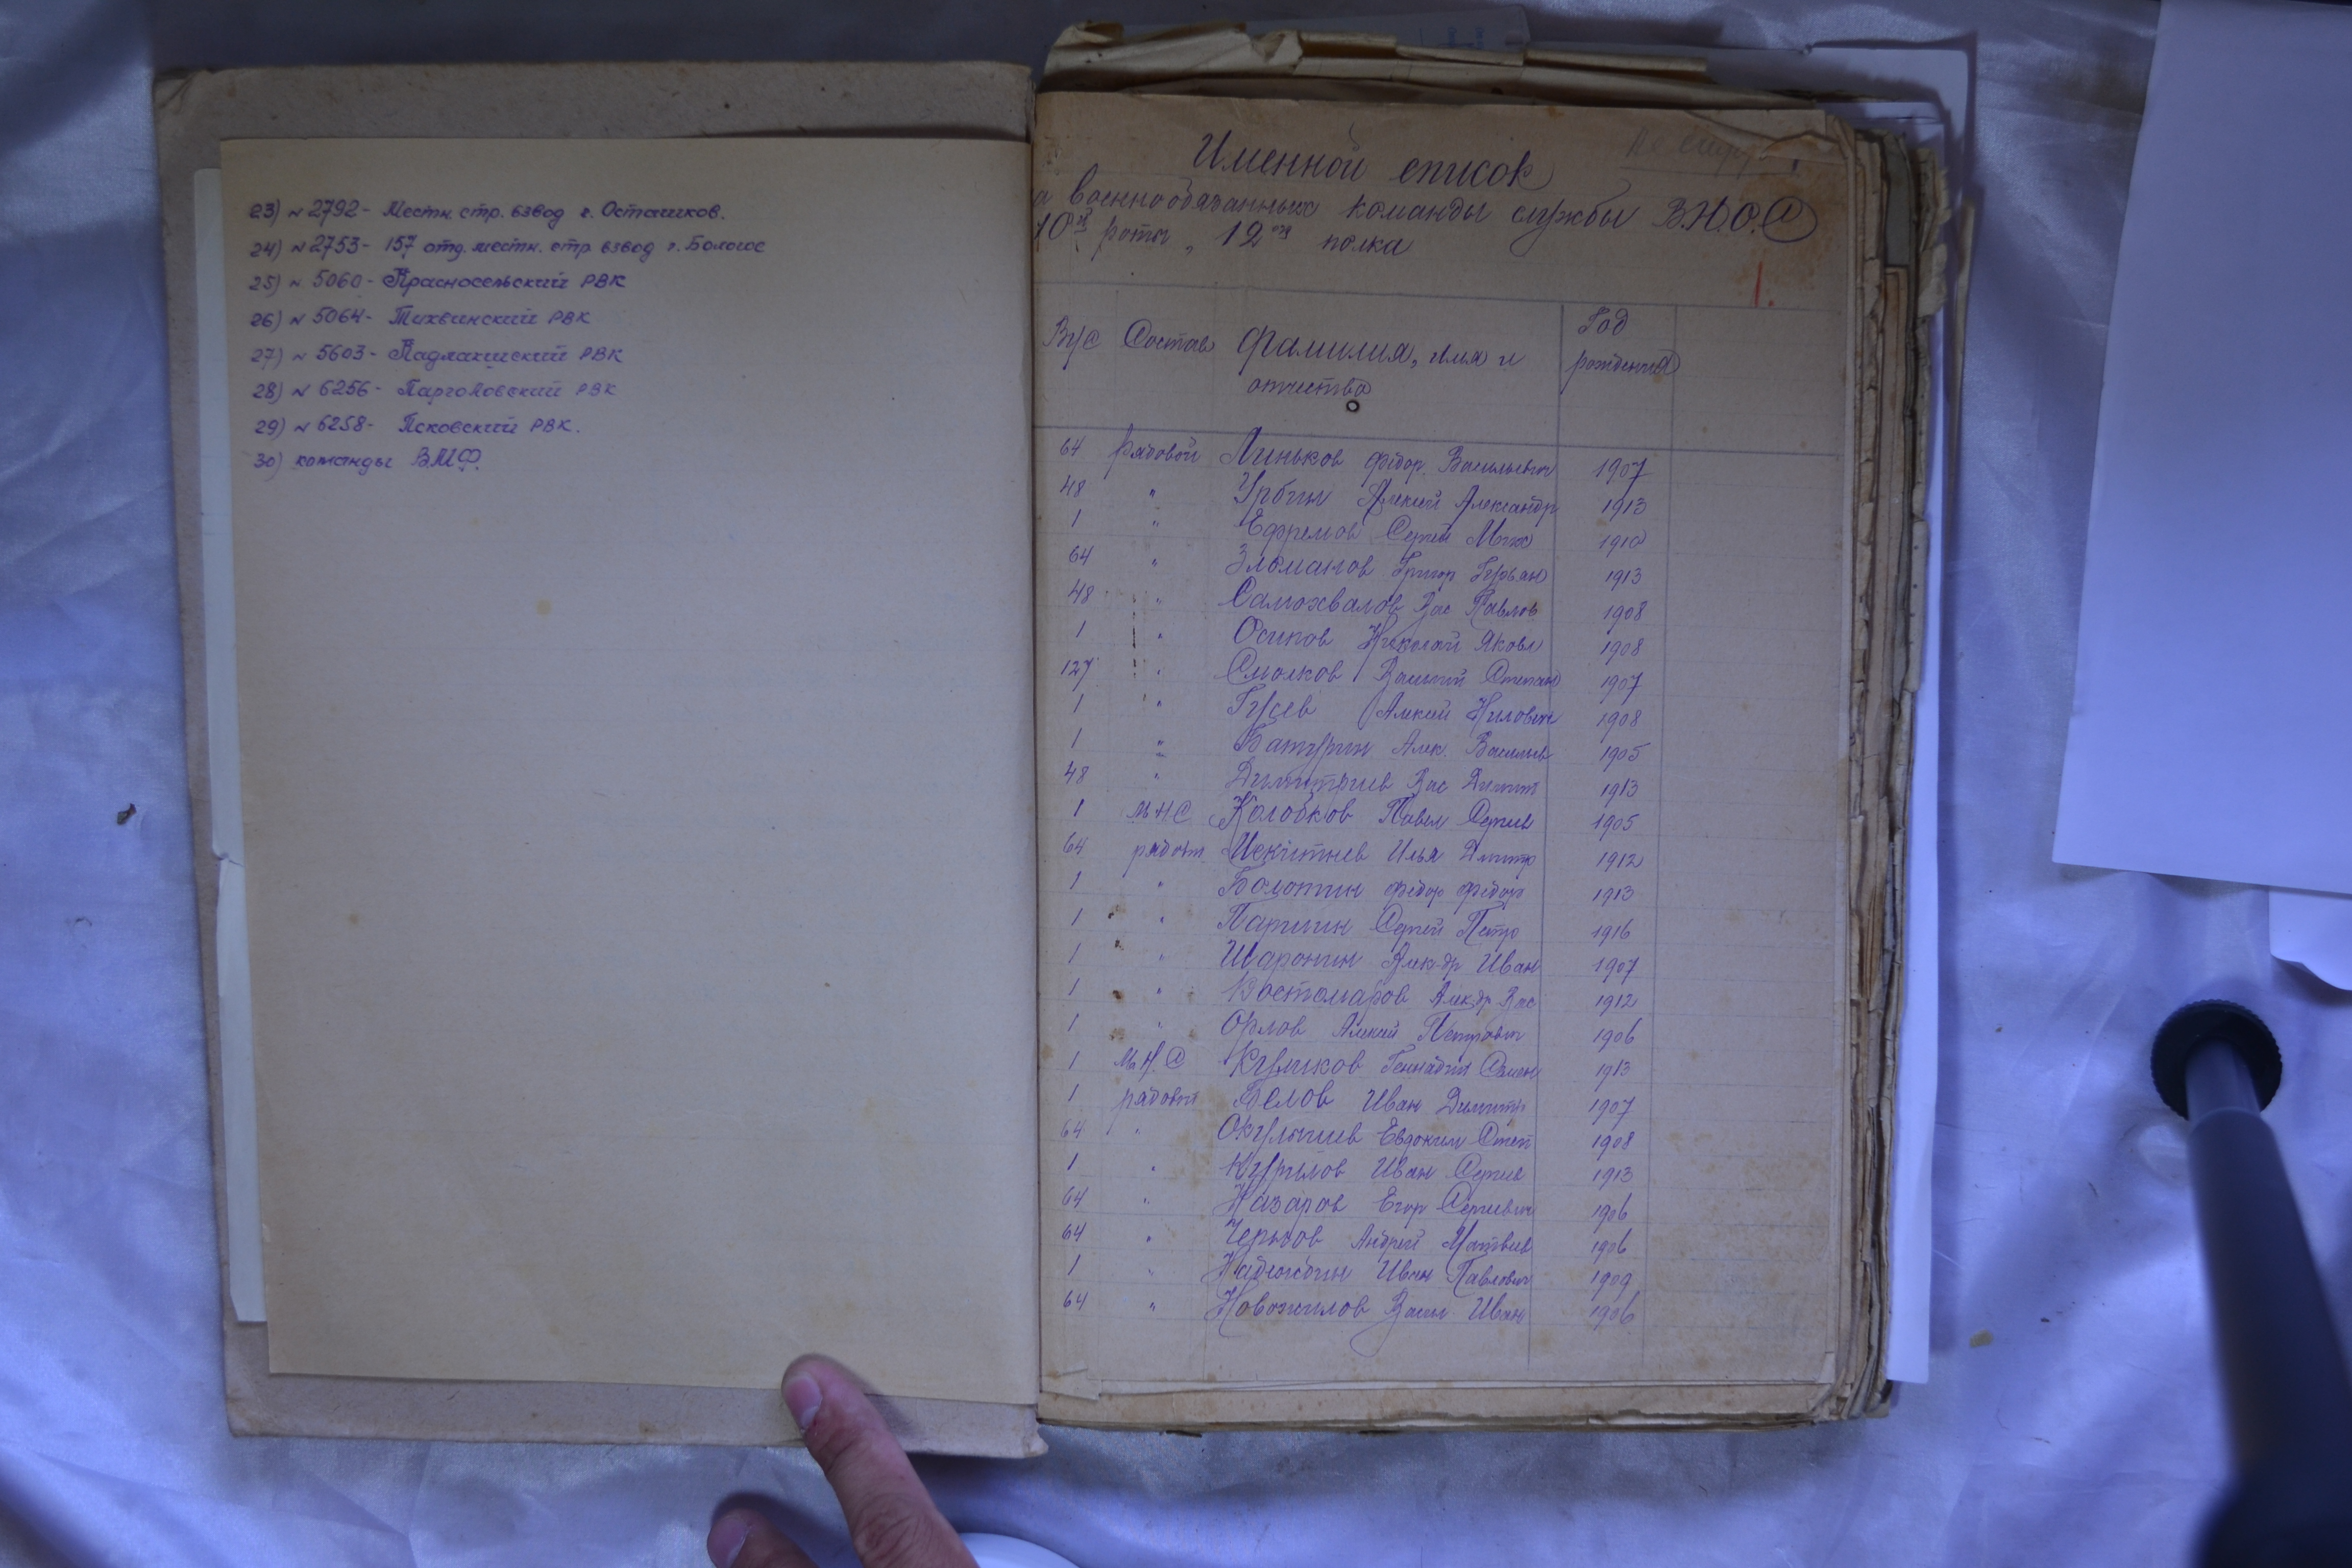 23) № 2792 - Местн. стр. взвод г. Осташков.
24) № 2753 - 157 отд. местн. стр взвод г. Бологое
25) № 5060 - Красносельский РВК
26) № 5064 - Тихвинский РВК
27) № 5603 - РВК
28) № 6256 - Парголовский РВК
29) № 6258 - Псковский РВК.
30) команды ВМФ.
Именной список
а военнообязанных команды службы В.Н.О.С
10й роты, 12го полка
1.
ВУС Состав Фамилия, имя и отчество Год рождения
64 рядовой Линьков Фёдор Васильевич 1907
48 " Урбин Алексей Александр 1913
1 " Ефремов Сергей Мих 1910
64 " Григор 1913
48 " Самохвалов Вас Павлов 1908
1 " Осипов Николай Яковл 1908
127 " Смолков Василий Степан 1907
1 " Гусев Алексей Нилович 1908
1 " Батурин Алек. Васильев 1905
48 " Димитриев Вас Димит 1913
1 МНС Колобков Павел Сергеев 1905
64 рядов. Илья Дмитр 1912
1 " Болотин Фёдор Фёдор 1913
1 " Паршин Сергей Петр 1916
1 " Шаронин Алек-др Иван 1907
1 " Костомаров Алекдр Вас 1912
1 " Орлов Алексей Петрович 1906
1 М.Н.С Куликов Геннадий Семен 1913
1 рядовой Белов Иван Димитр 1907
64 " Евдоким Степ 1908
1 " Курилов Иван Сергеев 1913
64 " Назаров Егор Сергеевич 1906
64 " Андрей Матвеев 1906
1 " Надеждин Иван Павлович 1909
64 " Новожилов Васил Иван 1906